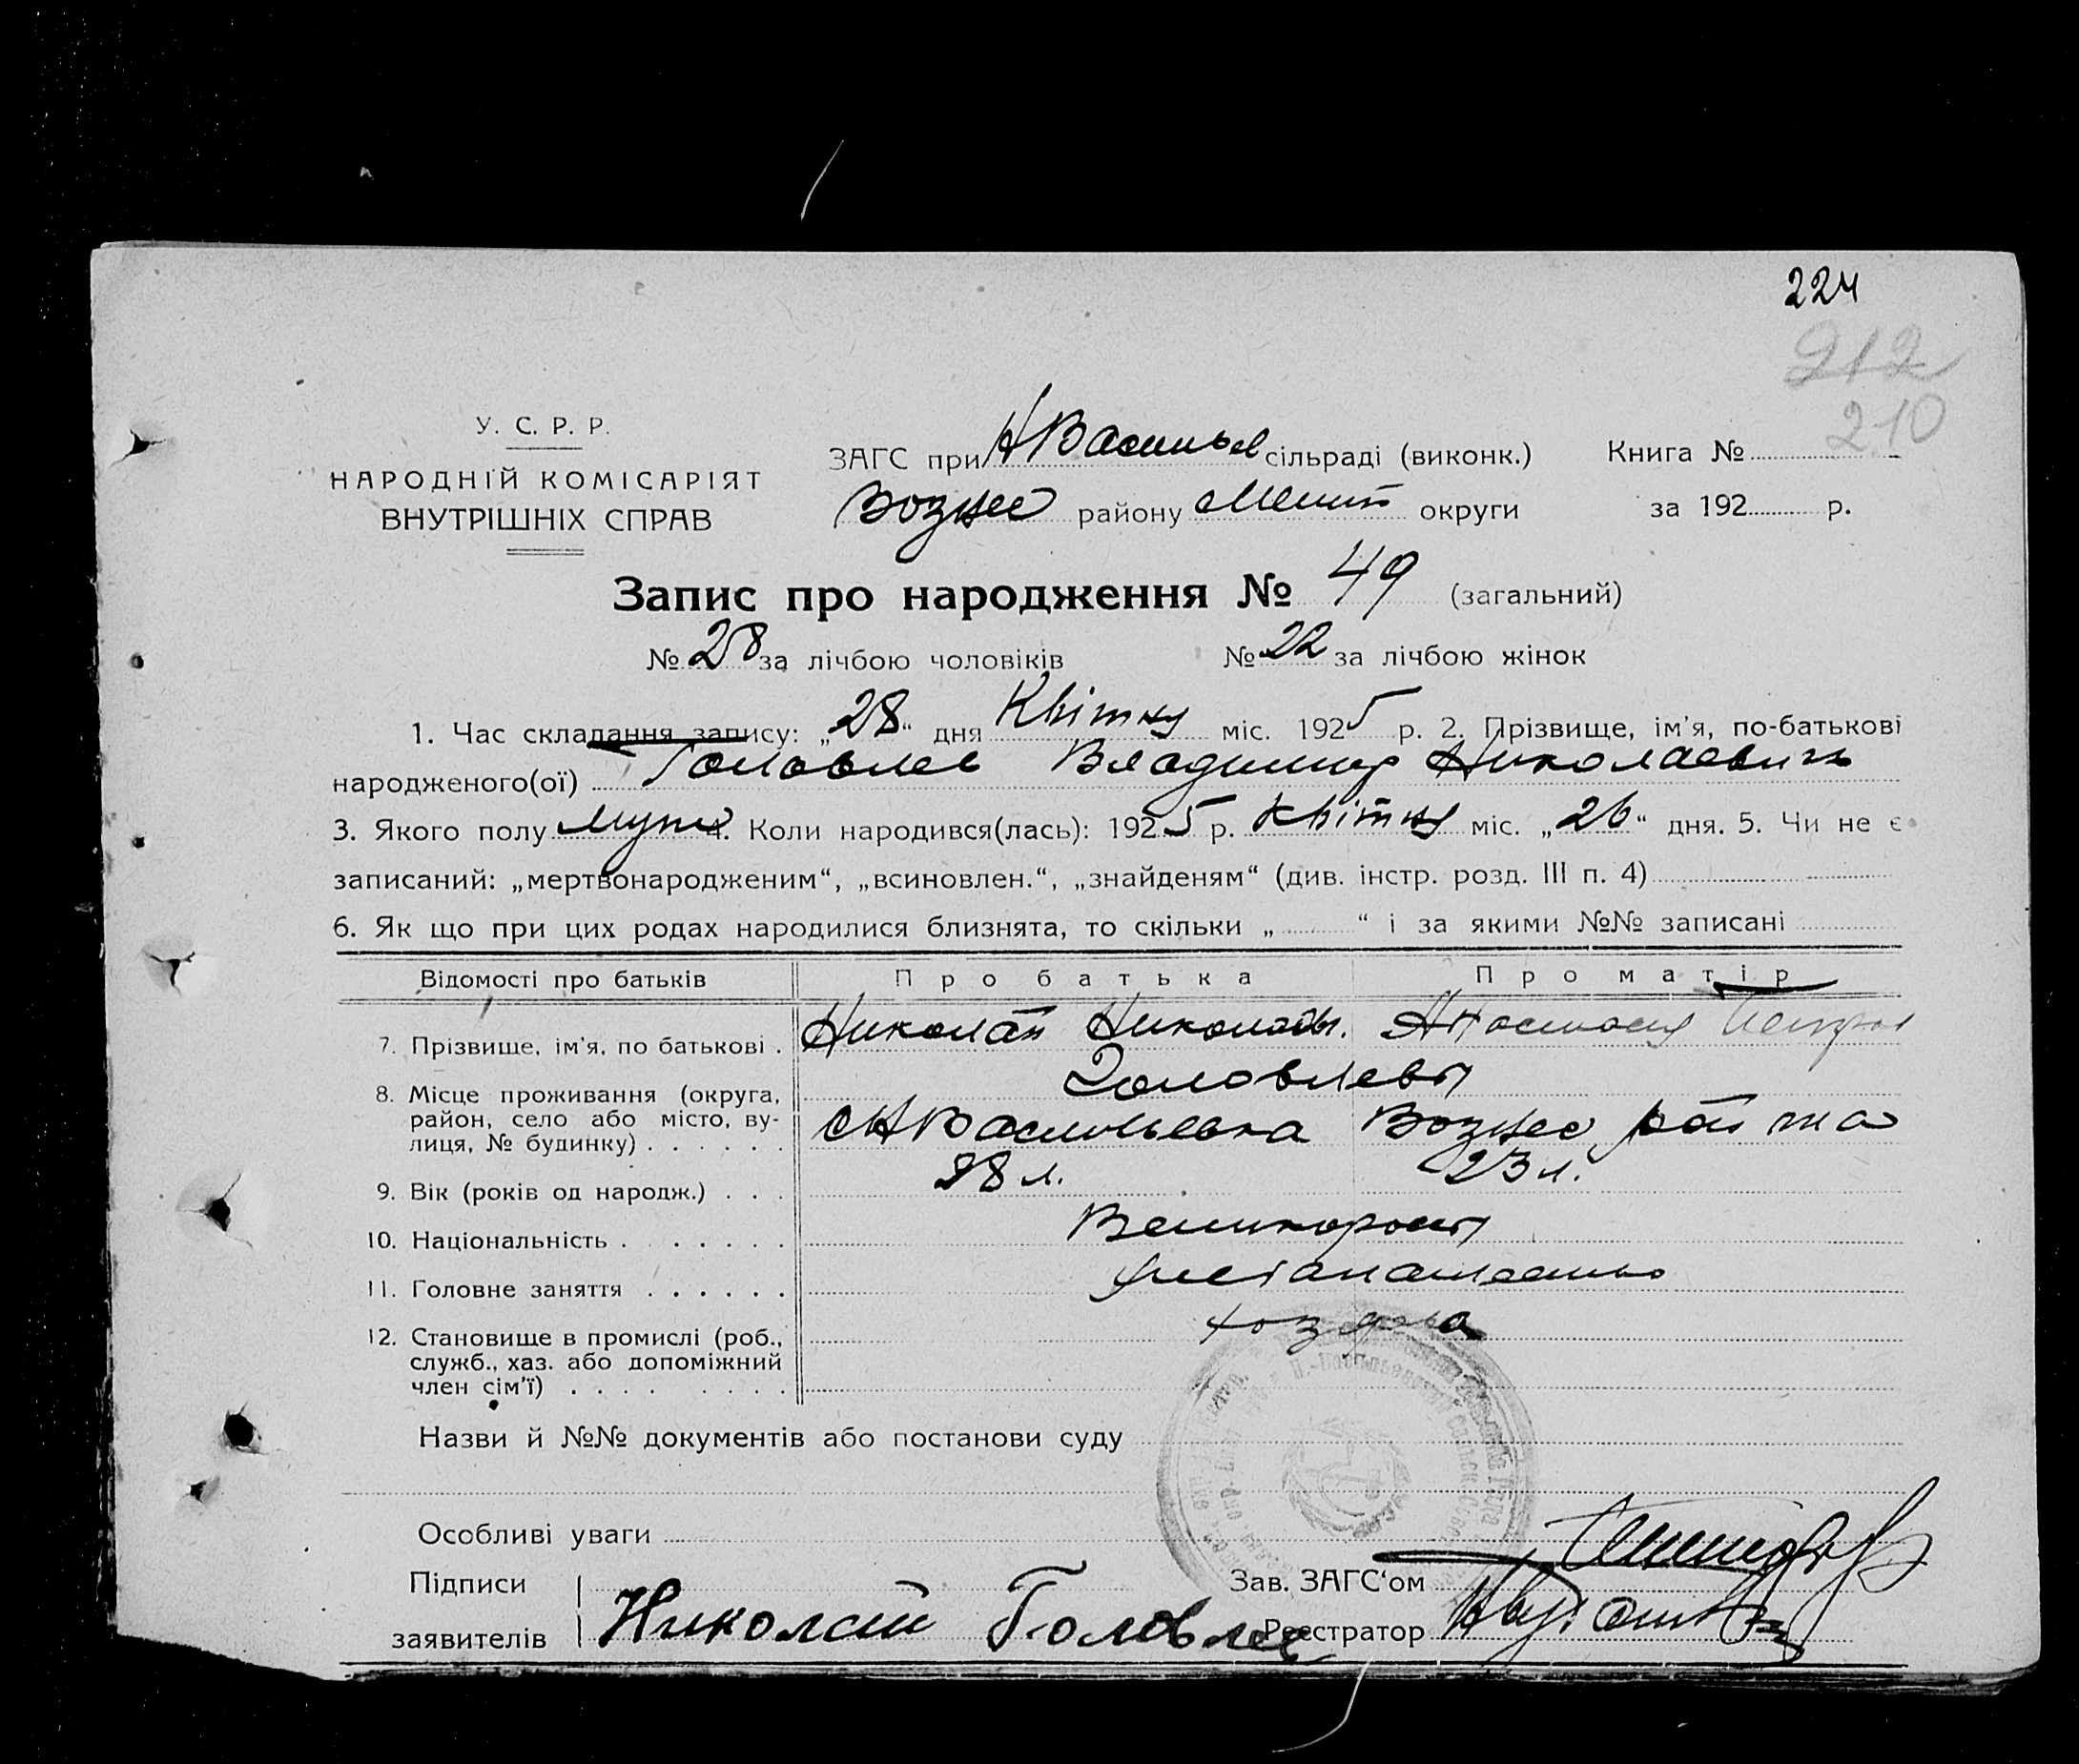 224
212
210
У. С. Р. Р.
НАРОДНІЙ КОМІСАРІЯТ
ВНУТРІШНІХ СПРАВ
ЗАГС при НВасильев сільраді (виконк.)
Книга №
Вознес району Мелит округи
за 192 р.
Запис про народження № 49 (загальний)
№ 28 за лічбою чоловіків № 22 за лічбою жінок
1. Час складання запису: „28“ дня Квітня міс. 1925 р. 2. Прізвище, ім'я, по-батькові
народженого(ої) Головлев Владимир Николаевич
3. Якого полу муж 4. Коли народився(лась): 1925 р. Квітня міс. „26“ дня. 5. Чи не є
записаний: „мертвонародженим“, „всиновлен.“, „знайденям“ (див. інстр. розд. III п. 4)
6. Як що при цих родах народилися близнята, то скільки „ “ і за якими №№ записані
Відомості про батьків Про батька Про матір
7. Прізвище, ім'я, по батькові . Николай Николаев. Анастасия Петров
Головлевы
8. Місце проживання (округа,
район, село або місто, ву-
лиця, № будинку) . . . . . . сНВасильевка Вознес района
9. Вік (років од народж.) . . . 28 л. 23 л.
10. Національність . . . . . . . Великороссы
11. Головне заняття . . . . . .
12. Становище в промислі (роб.,
служб., хаз. або допоміжний
член сім'ї) . . . . . . . . . хозяева
Назви й №№ документів або постанови суду
Особливі уваги
Підписи
заявителів Николай Головлев
Зав. ЗАГС‘ом
Реєстратор